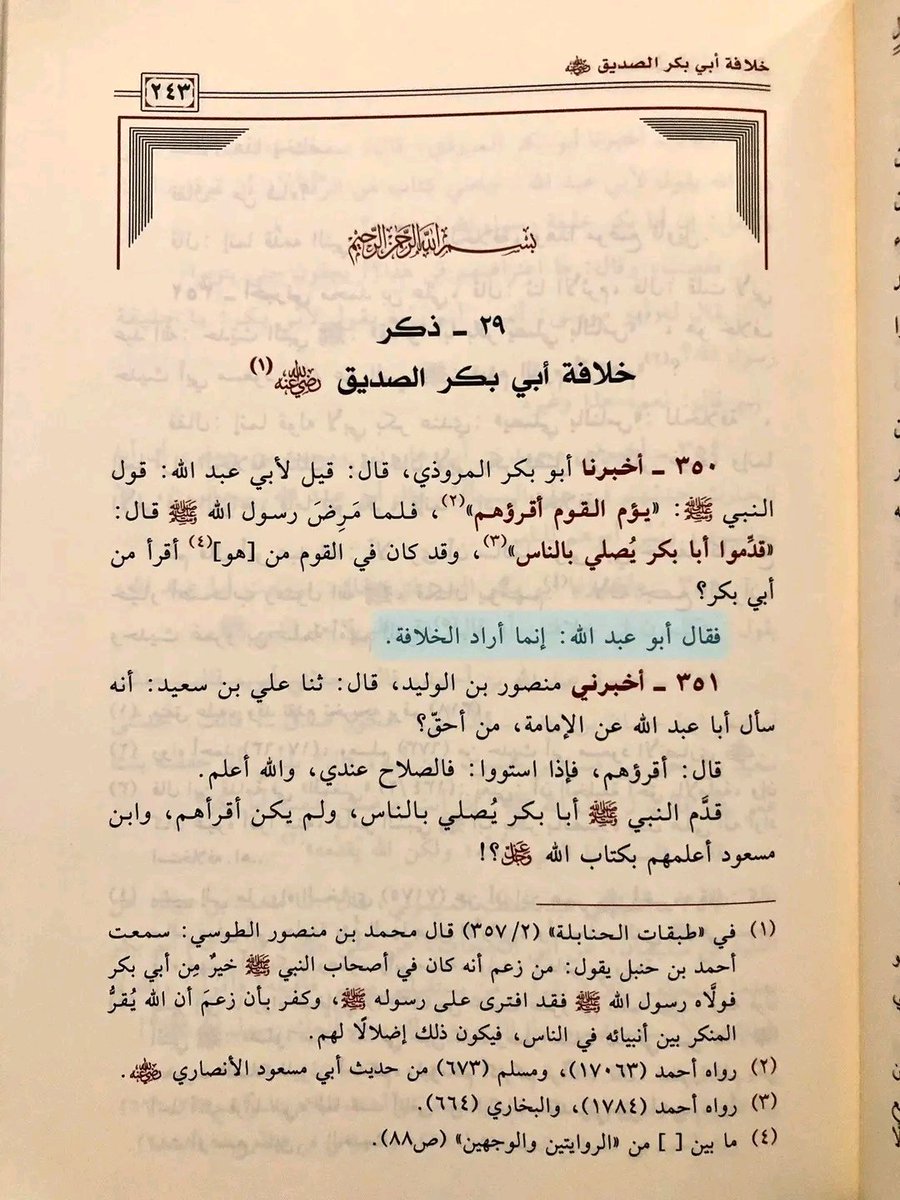 خلافة أبي بكر الصديق رضي الله عنه
٢٤٣
بسم الله الرحمن الرحيم
٢٩ ـ ذكر
خلافة أبي بكر الصديق رضي الله عنه (١)
٣٥٠ ـ أخبرنا أبو بكر المروذي، قال: قيل لأبي عبد الله: قول
النبي ﷺ: «يؤم القوم أقرؤهم»(٢)، فلما مَرِضَ رسول الله ﷺ قال:
«قدِّموا أبا بكر يُصلي بالناس»(٣)، وقد كان في القوم من [هو](٤) أقرأ من
أبي بكر؟
فقال أبو عبد الله: إنما أراد الخلافة.
٣٥١ ـ أخبرني منصور بن الوليد، قال: ثنا علي بن سعيد: أنه
سأل أبا عبد الله عن الإمامة، من أحقّ؟
قال: أقرؤهم، فإذا استووا: فالصلاح عندي، والله أعلم.
قدَّم النبي ﷺ أبا بكر يُصلي بالناس، ولم يكن أقرأهم، وابن
مسعود أعلمهم بكتاب الله عز وجل؟!
(١) في «طبقات الحنابلة» (٣٥٧/٢) قال محمد بن منصور الطوسي: سمعت
أحمد بن حنبل يقول: من زعم أنه كان في أصحاب النبي ﷺ خيرٌ مِن أبي بكر
فولَّاه رسول الله ﷺ فقد افترى على رسوله ﷺ، وكفر بأن زعمَ أن الله يُقرُّ
المنكر بين أنبيائه في الناس، فيكون ذلك إضلالًا لهم.
(٢) رواه أحمد (١٧٠٦٣)، ومسلم (٦٧٣) من حديث أبي مسعود الأنصاري رضي الله عنه.
(٣) رواه أحمد (١٧٨٤)، والبخاري (٦٦٤).
(٤) ما بين [ ] من «الروايتين والوجهين» (ص٨٨).